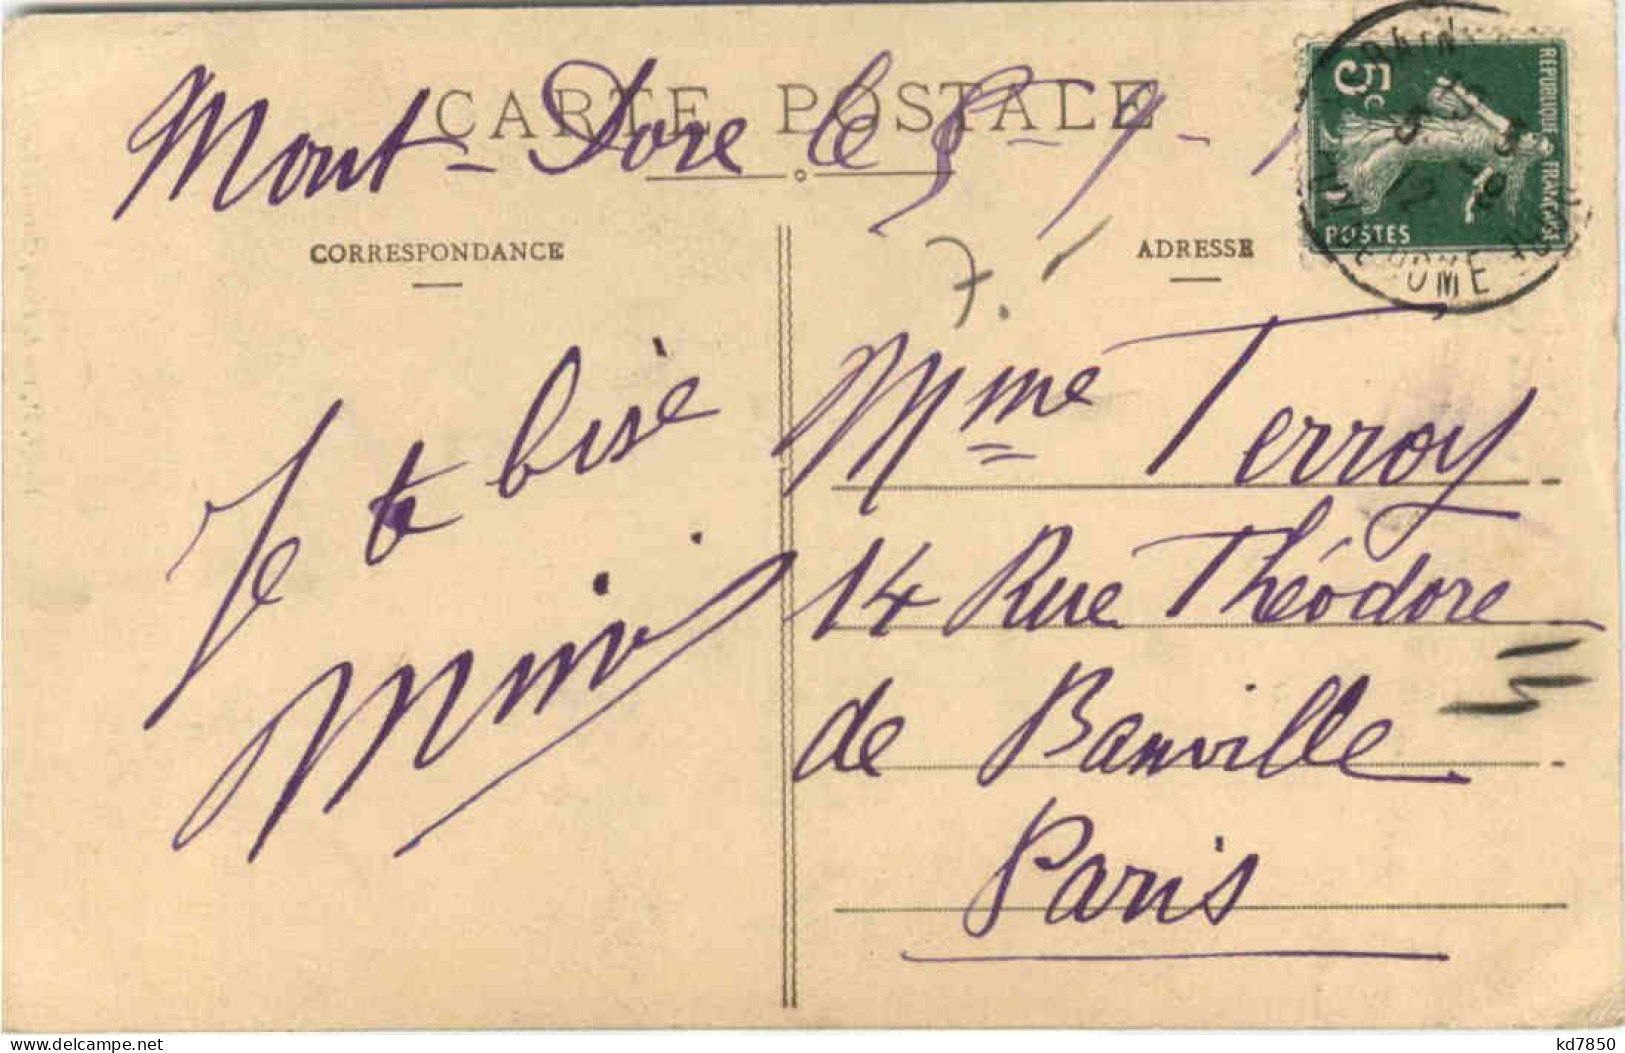 CARTE POSTALE
Mont-Dore le
CORRESPONDANCE
ADRESSE
5c
REPUBLIQUE FRANCAISE
POSTES
DOME
7.
Je te bise
Mimi
Mme Terroy
14 Rue Théodore
de Banville
Paris
delcampe.net
kd7850